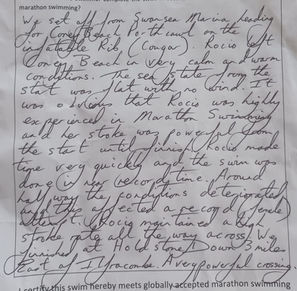 marathon swimming?
We set off from Swansea Marina heading
for Coney Beach Porthcawl on the
inflatable Rib (Cougar). Rocio left
Coney Beach in very calm and warm
conditions. The sea state from the
start was flat with no wind. It
was obvious that Rocio was highly
experienced in Marathon Swimming
and her stroke was powerful from
the start until finish. Rocio made
time very quickly and the swim was
done in new record time. Around
half way the conditions deteriorated
and this affected a record (female
Rocio maintained a high
stroke rate all the way across. We
finished at Holdstone Down 3 miles
East of Ilfracombe. A very powerful crossing
I certify this swim hereby meets globally accepted marathon swimming